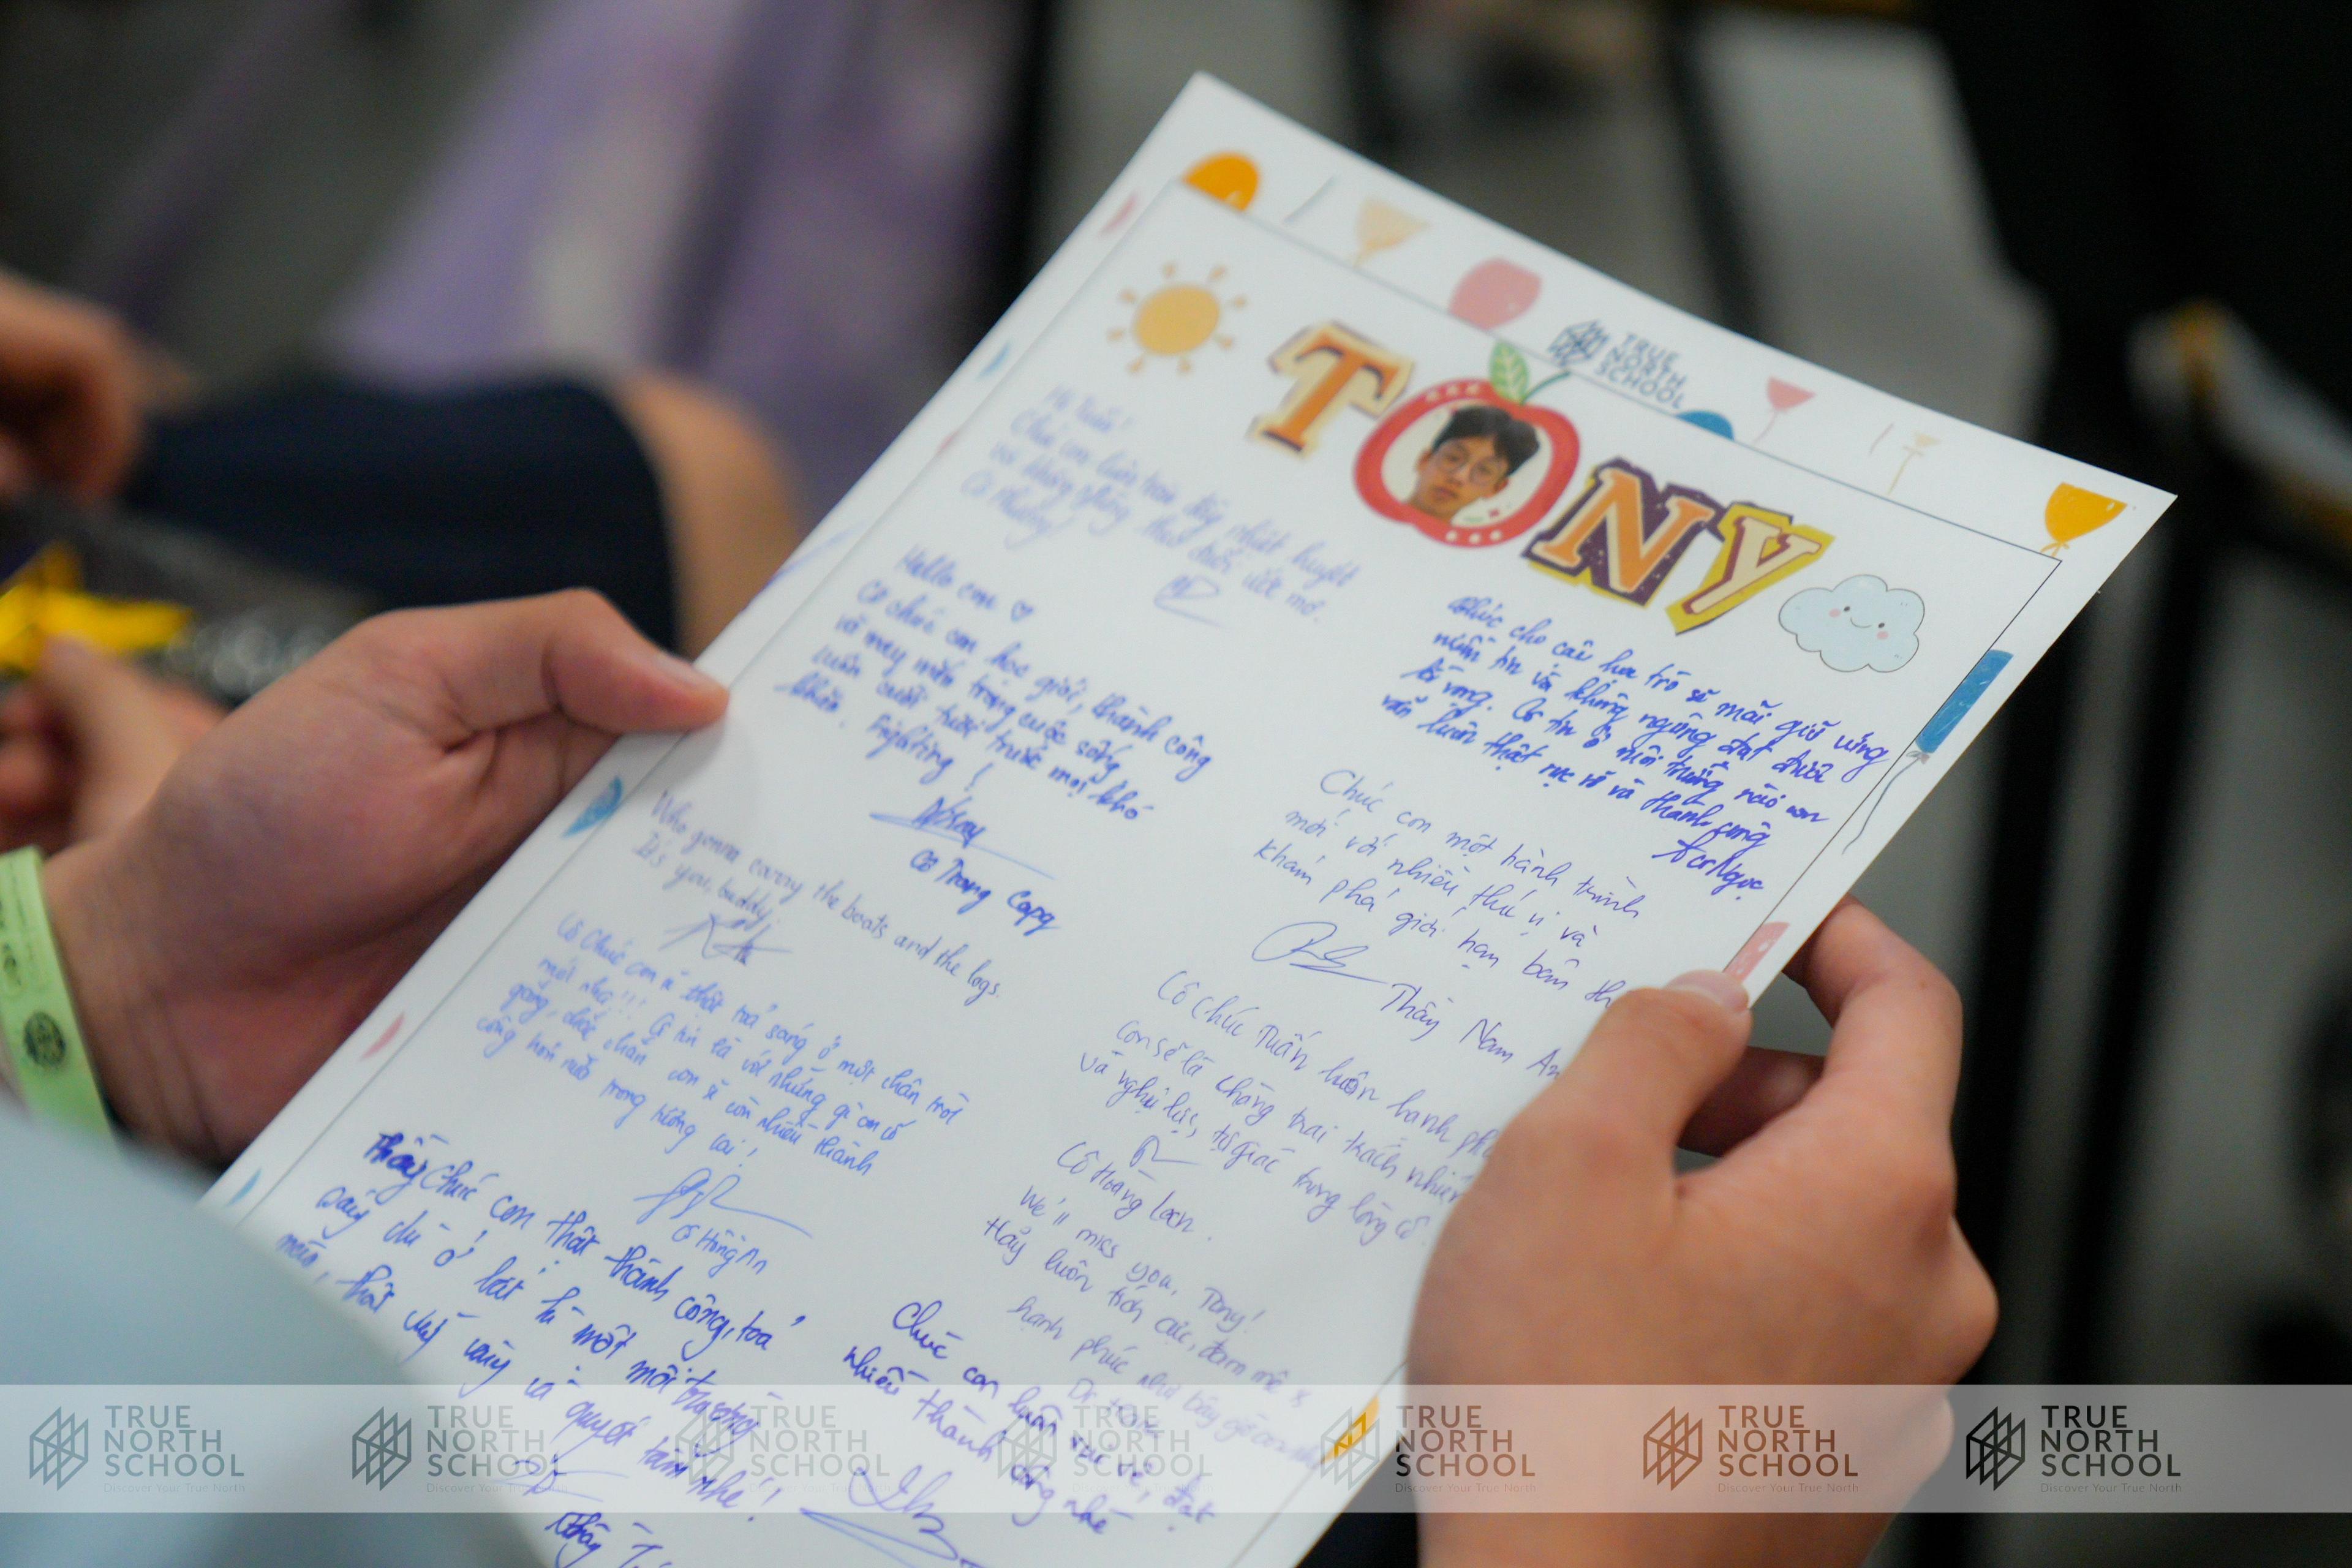 TRUE
NORTH
SCHOOL
TONY
Hi Tuấn!
Chúc con luôn tràn đầy nhiệt huyết
và không ngừng theo đuổi ước mơ.
Hello con ♡
Cô chúc con học giỏi, thành công
và may mắn trong cuộc sống
luôn cười trước mọi khó
khăn. Fighting!
Cô Trang Capy
Who gonna carry the boats and the logs.
It's you, buddy.
Cô chúc con sẽ thật toả sáng ở một chân trời
mới nha!!! Cô tin là với những gì con cố
gắng, chắc chắn con sẽ còn nhiều thành
công hơn nữa trong tương lai!
Cô Hồng An
Thầy chúc con thật thành công, toả
sáng dù ở bất kì một môi trường
nào, thật vững vàng và quyết tâm nhé!
Thầy
Chúc cho cậu học trò sẽ mãi giữ vững
niềm tin và không ngừng đạt được
kì vọng. Cô tin ở môi trường nào con
vẫn luôn thật rực rỡ và thành công
Chúc con một hành trình
mới với nhiều thú vị và
khám phá giới hạn bản th
Thầy Nam An
Cô chúc Tuấn luôn hạnh ph
Con sẽ là chàng trai trách nhiệm
và nghị lực, tự giác trong lòng cô.
Cô Hoàng Loan.
We'll miss you, Tony!
Hãy luôn tích cực, đam mê &
hạnh phúc như bây giờ con nhé
Chúc con luôn vui vẻ, đạt
nhiều thành công nhé
TRUE
NORTH
SCHOOL
Discover Your True North
TRUE
NORTH
SCHOOL
Discover Your True North
TRUE
NORTH
SCHOOL
Discover Your True North
TRUE
NORTH
SCHOOL
Discover Your True North
TRUE
NORTH
SCHOOL
Discover Your True North
TRUE
NORTH
SCHOOL
Discover Your True North
TRUE
NORTH
SCHOOL
Discover Your True North